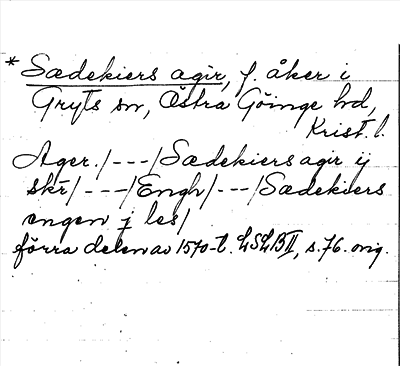 * Sædekiers agir, f. åker i
Gryts sn, Östra Göinge hd,
Krist. l.
Ager. /---/ Sædekiers agir ij
skr /---/ Engh /---/ Sædekiers
engen j les/
förra delen av 1570-t. LSLB II, s. 76. orig.